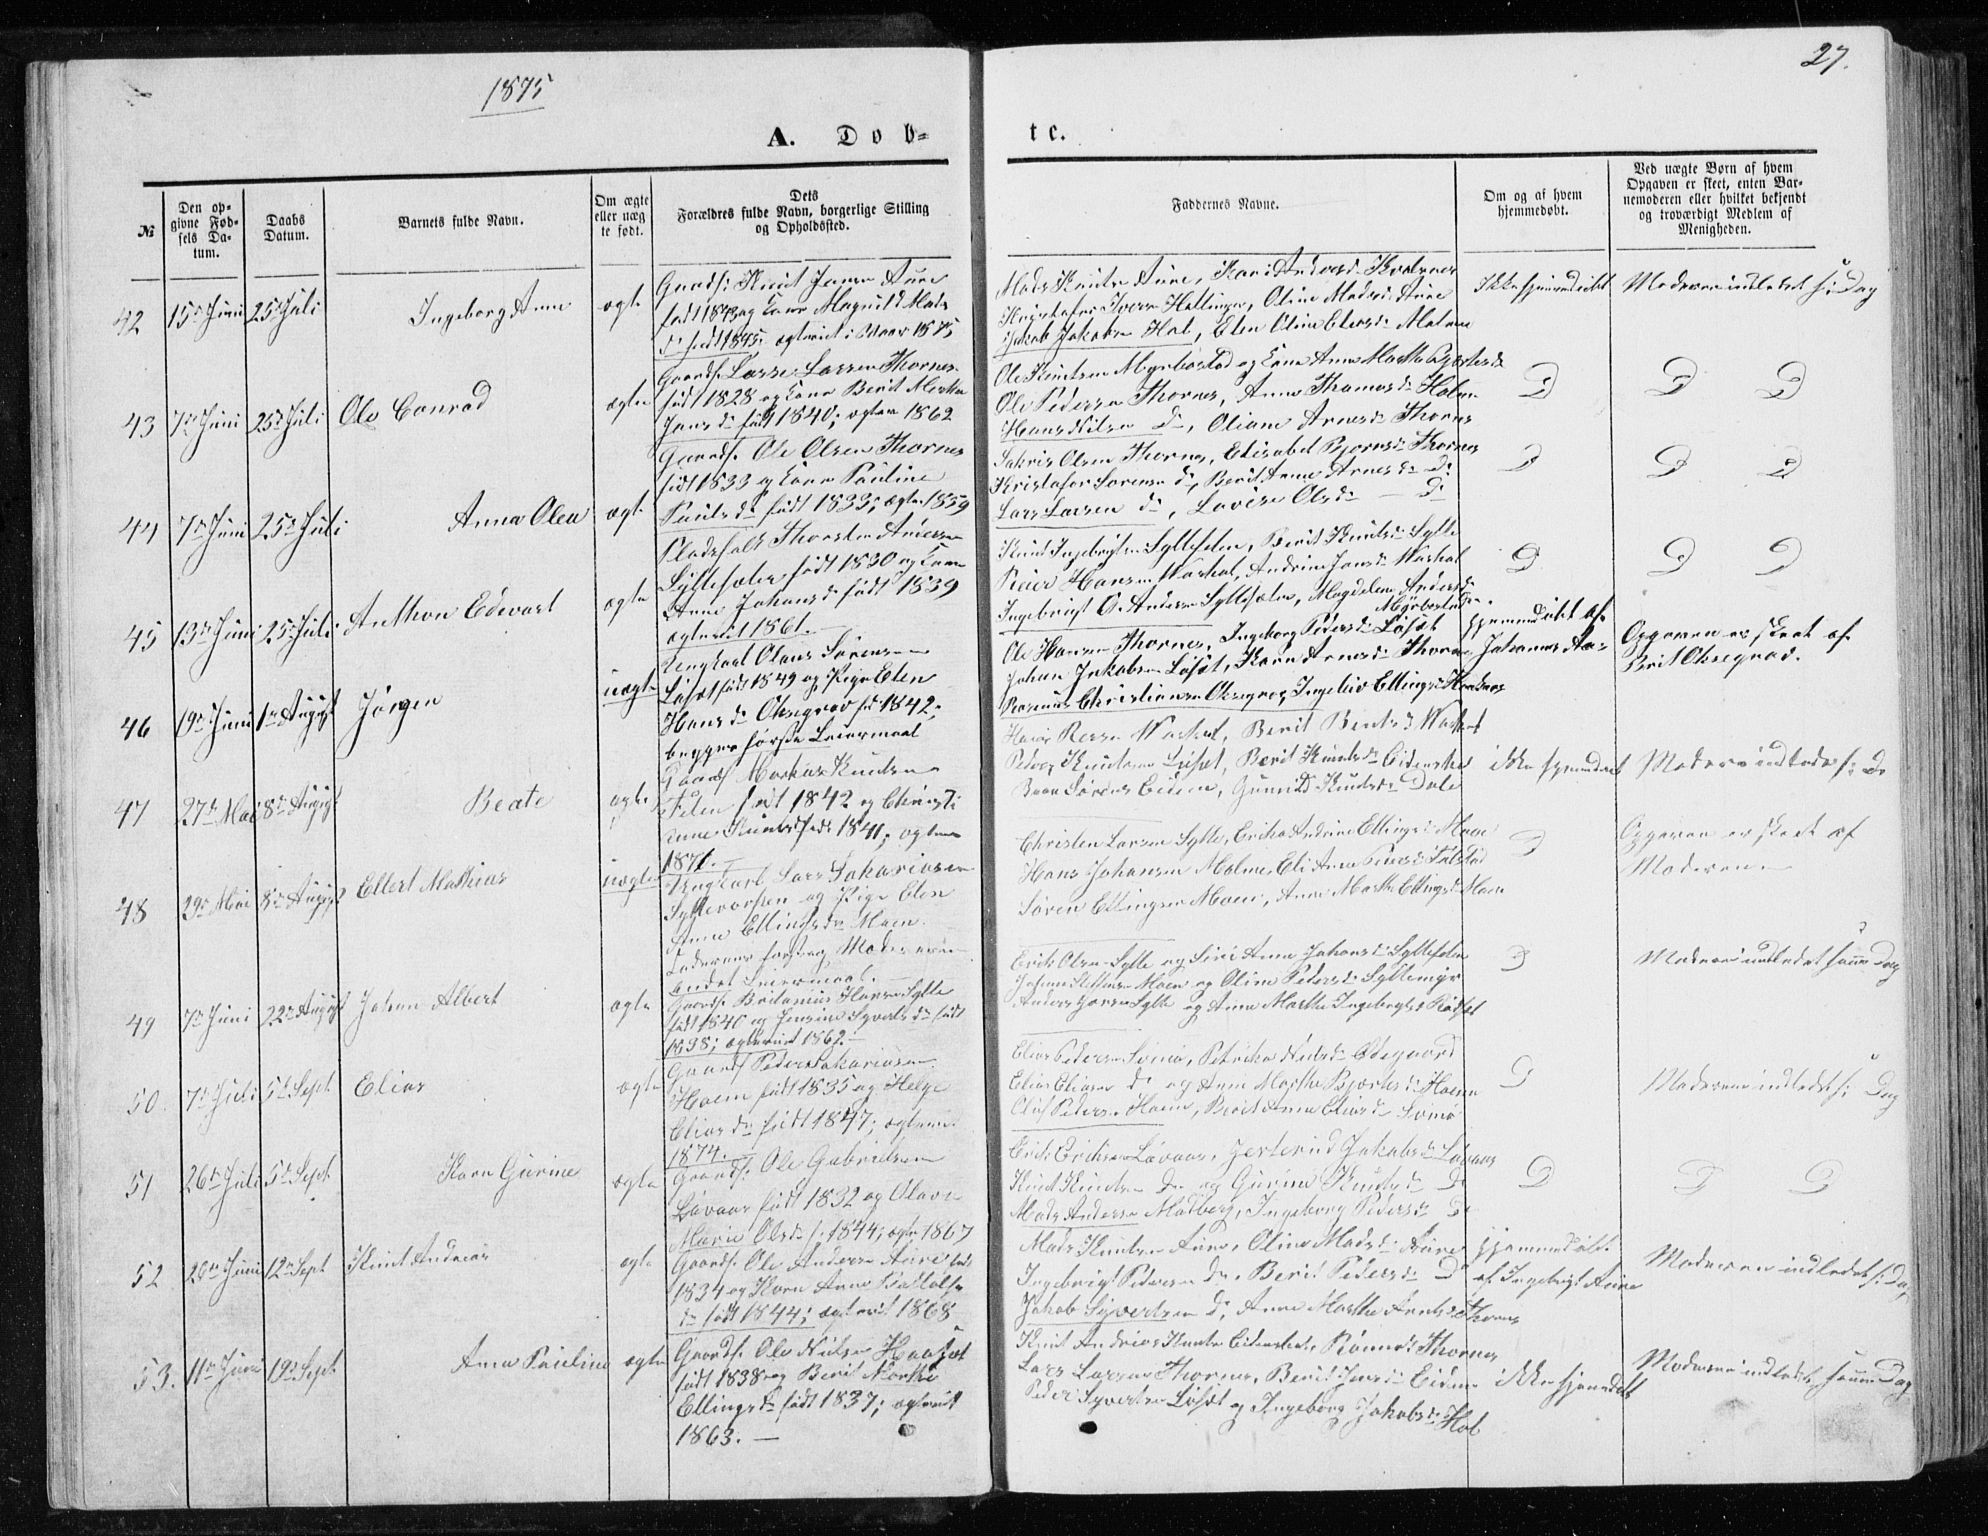 1875
27.
A. Døb-
te.
№
Den op-
givne Fød-
sels Da-
tum.
Daabs
Datum.
Barnets fulde Navn.
Om ægte
eller uæg
te født.
Dets
Forældres fulde Navn, borgerlige Stilling
og Opholdssted.
Faddernes Navne.
Om og af hvem
hjemmedøbt.
Ved uægte Børn af hvem
Opgaven er skeet, enten Bar-
nemoderen eller hvilket bekjendt
og troværdigt Medlem af
Menigheden.
42 15de Juni 25de Juli Ingeborg Anne ægte
Gaardf: Knut Jensen Aure
født 1843 og Kone Magnild Mads
dr født 1845. ægteviet i 1875
Mads Knutsen Aure, Kari Andersdr
Kristofer Iversen Hellingen, Oline Madsdr Aure
Jakob Jakobsen Hol, Elen Oline Malme
Ikke hjemmedøbt
Moderen indledet s: Dag
43 7de Juni 25de Juli Ole Conrad ægte
Gaardf: Lasse Larsen Thornes
født 1828 og Kone Berit Marthe
Jensdr født 1840; ægtev 1862
Ole Knutsen Myrbostad og Kone Anne Marthe
Ole Pedersen Thornes, Anne Thomasdr Holm
Hans Nilsen Do, Oliane Arnesdr Thornes
D D D
44 7de Juni 25de Juli Anna Olea ægte
Gaardf. Ole Olsen Thornes
født 1833 og Kone Pauline
Paulsdr født 1833; ægtev 1859
Sakris Olsen Thornes, Elisabet Bjørnsdr Thornes
Kristofer Sørensen do, Berit Anne Arnesdr Do
Lars Larsen do, Lovise Olsdr Do
D D D
45 13de Juni 25de Juli Anthon Edvart ægte
Pladsfolk Thorsten Andersen
Syltesæter født 1830 og Kone
Anne Johansdr født 1839
ægteviet 1861.
Knut Ingebrigtsen Syltesæter, Berit Knutsdr Sylte
Peder Hansen Warhol, Andrine Jensdr Warhol
Ingebrigt O. Andersen Syltesæter, Magdelene Andersdr
Myrbostad
D D D
46 19de Juni 1ste August Jørgen uægte
Ungkarl Olaus Sørensen
Løset født 1849 og Pige Elen
Hansdr Oksegrav fød 1842;
begges første Leiermaal
Ole Hansen Thornes, Ingeborg Pedersdr Løset
Johan Jakobsen Løset, Karen Arnesdr Thornes
Rasmus Christiansen Oksegrav, Ingeborg Ellingsdr
Hjemmedøbt af
Johannes
Opgaven er skeet af
Berit Oksegrav.
47 27de Mai 8de August Beate ægte
Gaardf Markus Knutsen
født 1842 og Christi
anne Knutsdr født 1841; ægtev
1871.
Berit Bentsdr
Peder Knutsen Løset, Berit Knutsdr
Sørens Eidem, Gunild Knutsdr Dale
ikke hjemmedøbt
Moderen indledet s: D
48 29de Mai 8de August Ellert Mathias uægte
Ungkarl Lars Sakariasen
og Pige Elen
Anne Ellingsdr Moen.
Faderens første og Moderens
andet Leiermaal.
Christen Larsen Sylte, Erikka Andrine Ellingsdr Moen
Hans Johansen Malme, Eli Anne
Søren Ellingsen Moen, Anne Marthe Ellingsdr Moen
D
Opgaven er skeet af
Moderen
49 7de Juni 22de August Johan Albert ægte
Gaardf: Britanius Hansen Sylte
født 1840 og Jensine Syvertsdr født
1838; ægteviet 1862.
Erik Olsen Sylte og Siri Anne Johansdr Syltesæter
Moen og Oline Pedersdr Syltemyr
Anders Hansen Sylte og Anne Marthe Ingebrigtsdr Rødset
D
Moderen indledet samme Dag
50. 7de Juli 5te Sept Elias ægte
Gaardf Peder Sakariasen
Hoem født 1835 og Helge
Eliasdr født 1847; ægtev.
1874.
Elias Pedersen, Petrikke Ødegaard
Elias Eliasen do og Anne Marthe Bjørnsdr Hoem
Oluf Pedersen Hoem, Berit Anne Eliasdr
D
Moderen indledet s: Dag
51 26de Juli 5te Sept Karen Gurine ægte
Gaardf: Ole Gabrielsen
Løvaas født 1832 og Olava
Marie Olsdr f: 1844; ægtev 1867
Erik Eriksen Løvaas, Jertrud Jakobsdr Løvaas
Knut Knutsen Do og Gurine Knutsdr Do
Mads Andersen Malberg, Ingeborg Pedersdr Do
D D D
52 20de Juni 12te Sept Knut Andreas ægte
Gaardf: Ole Andersen Aure født
1834 og Karen Anne
dr født 1844; ægteviet 1868
Mads Knutsen Aure, Oline Madsdr Aure
Ingebrigt Pedersen Do, Berit Pedersdr Do
Jakob Syvertsen Do, Anne Marthe Thornes
Hjemmedøbt
af Ingebrigt Aure
Moderen indledet s: Dag
53. 11te Juni 19de Sept Anne Pauline ægte
Gaardf: Ole Nilsen
født 1838 og Berit Marthe
Ellingsdr født 1837; ægteviet
1863.
Knut Andreas Knutsen Thornes
Lars Larsen Thornes, Berit Jensdr Eidem
Peder Syvertsen Løset og Ingeborg Jakobsdr Hol
ikke hjemmedøbt
Moderen indledet samme Dag